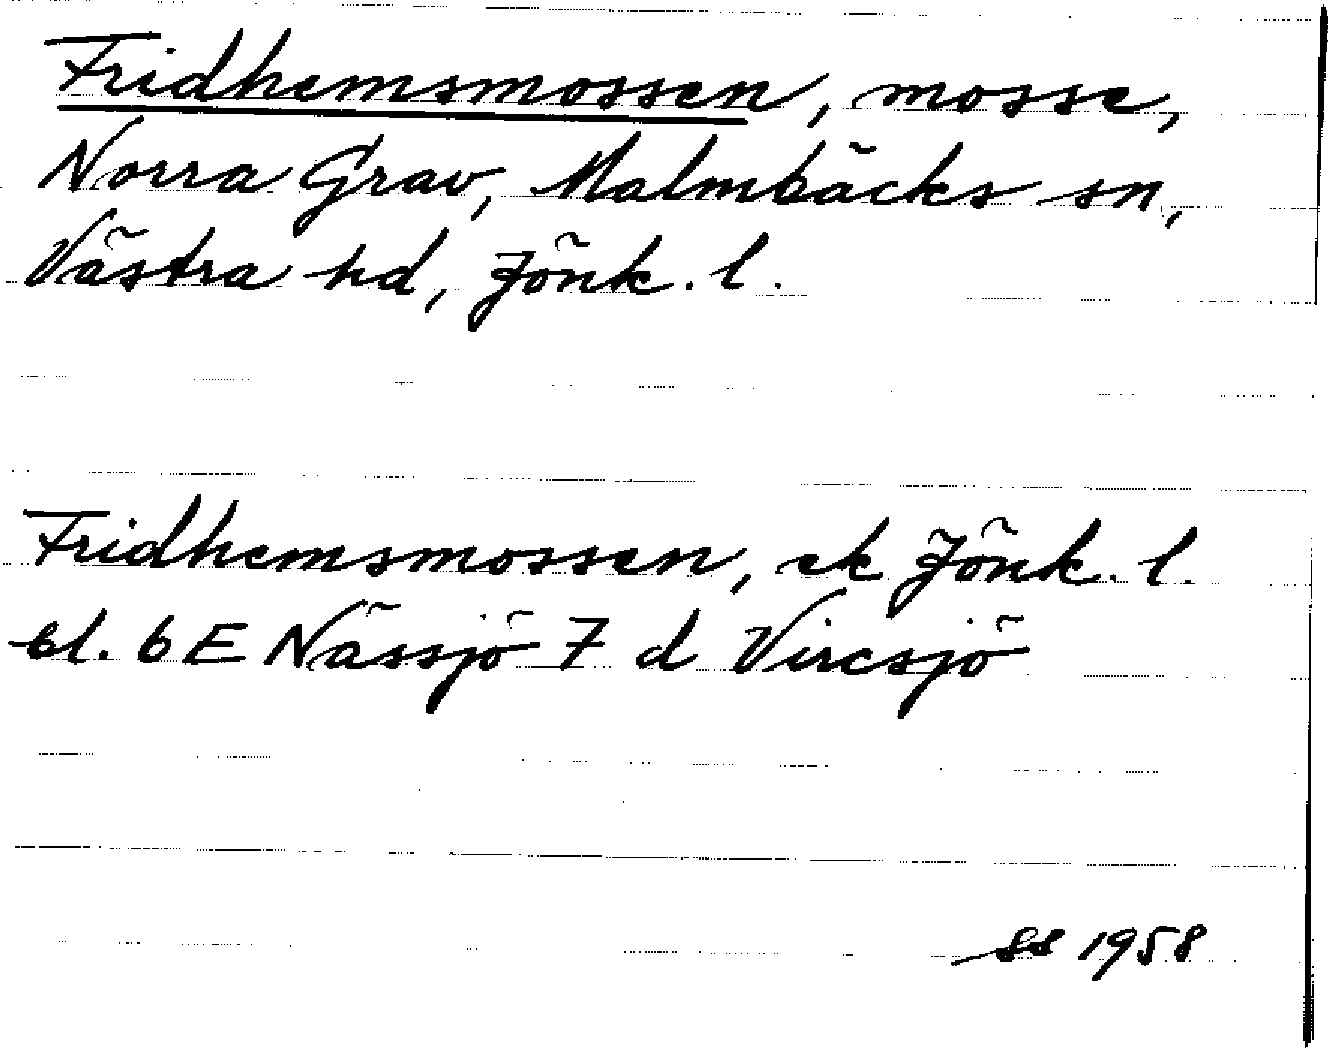 Fridhemsmossen, mosse,
Norra Grav, Malmbäcks sn,
Västra hd, Jönk. l.
Fridhemsmossen, ek Jönk. l.
bl. 6 E Nässjö 7 d Vircsjö
SS 1958